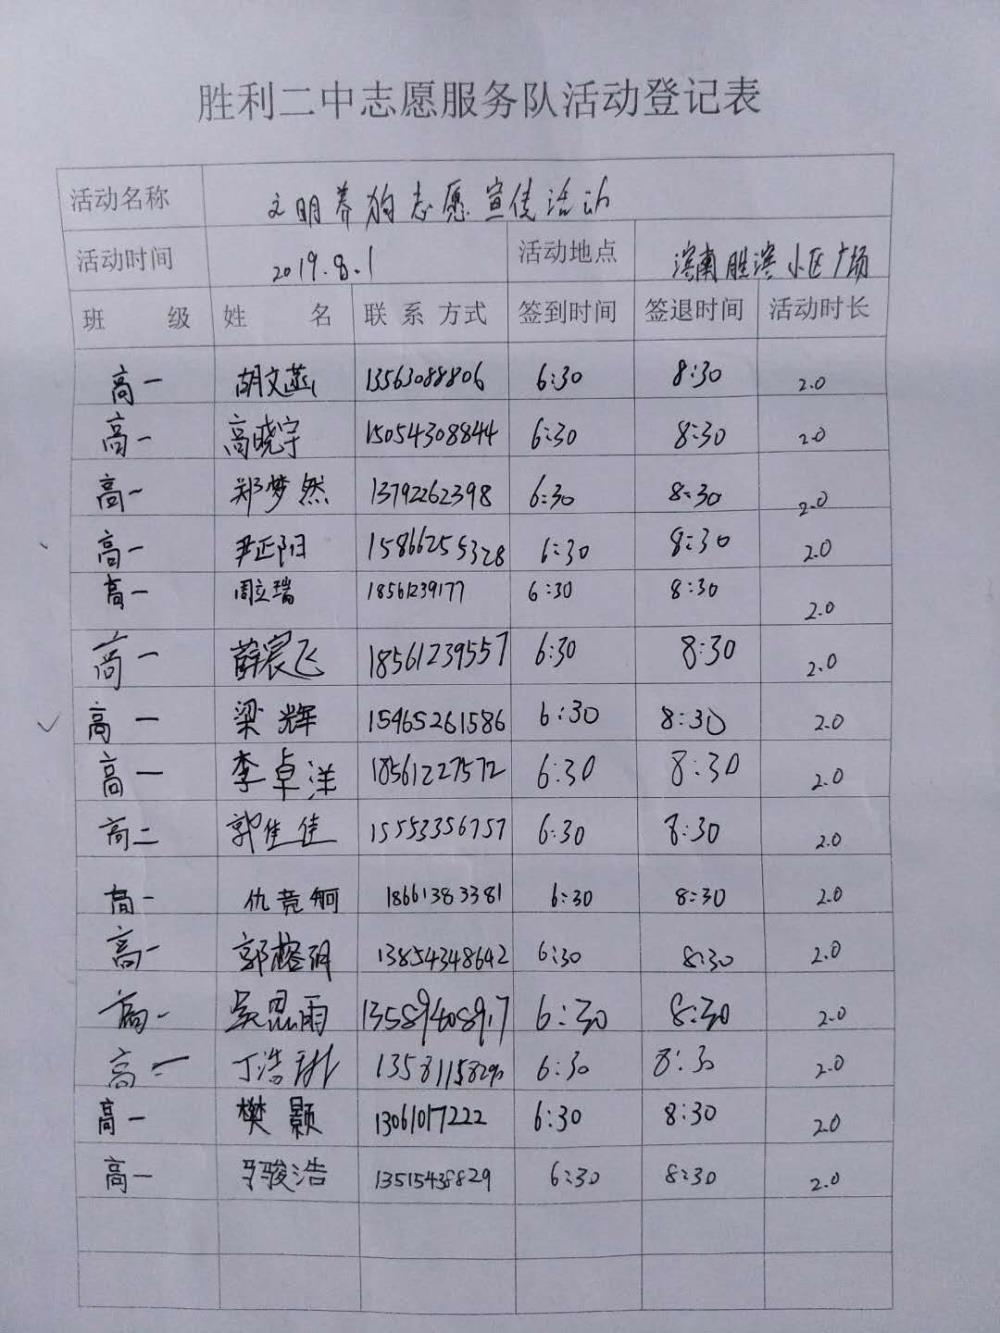 胜利二中志愿服务队活动登记表
活动名称 文明养狗志愿宣传活动
活动时间 2019.8.1 活动地点 滨南胜滨小区广场
班 级 姓 名 联系方式 签到时间 签退时间 活动时长
高一 胡文燕 13563088806 6:30 8:30 2.0
高一 高晓宇 15054308844 6:30 8:30 2.0
高一 郑梦然 13792262398 6:30 8:30 2.0
高一 尹正阳 15866255328 6:30 8:30 2.0
高一 周立瑞 18561239177 6:30 8:30 2.0
高一 薛宸飞 18561239557 6:30 8:30 2.0
高一 梁辉 15965261586 6:30 8:30 2.0
高一 李卓洋 18561227572 6:30 8:30 2.0
高二 郭佳佳 15553356757 6:30 8:30 2.0
高一 仇竞舸 18661383381 6:30 8:30 2.0
高一 郭榕玥 13854348642 6:30 8:30 2.0
高一 吴思雨 6:30 8:30 2.0
高一 丁浩 6:30 8:30 2.0
高一 樊颢 13061017222 6:30 8:30 2.0
高一 骏浩 13515438829 6:30 8:30 2.0